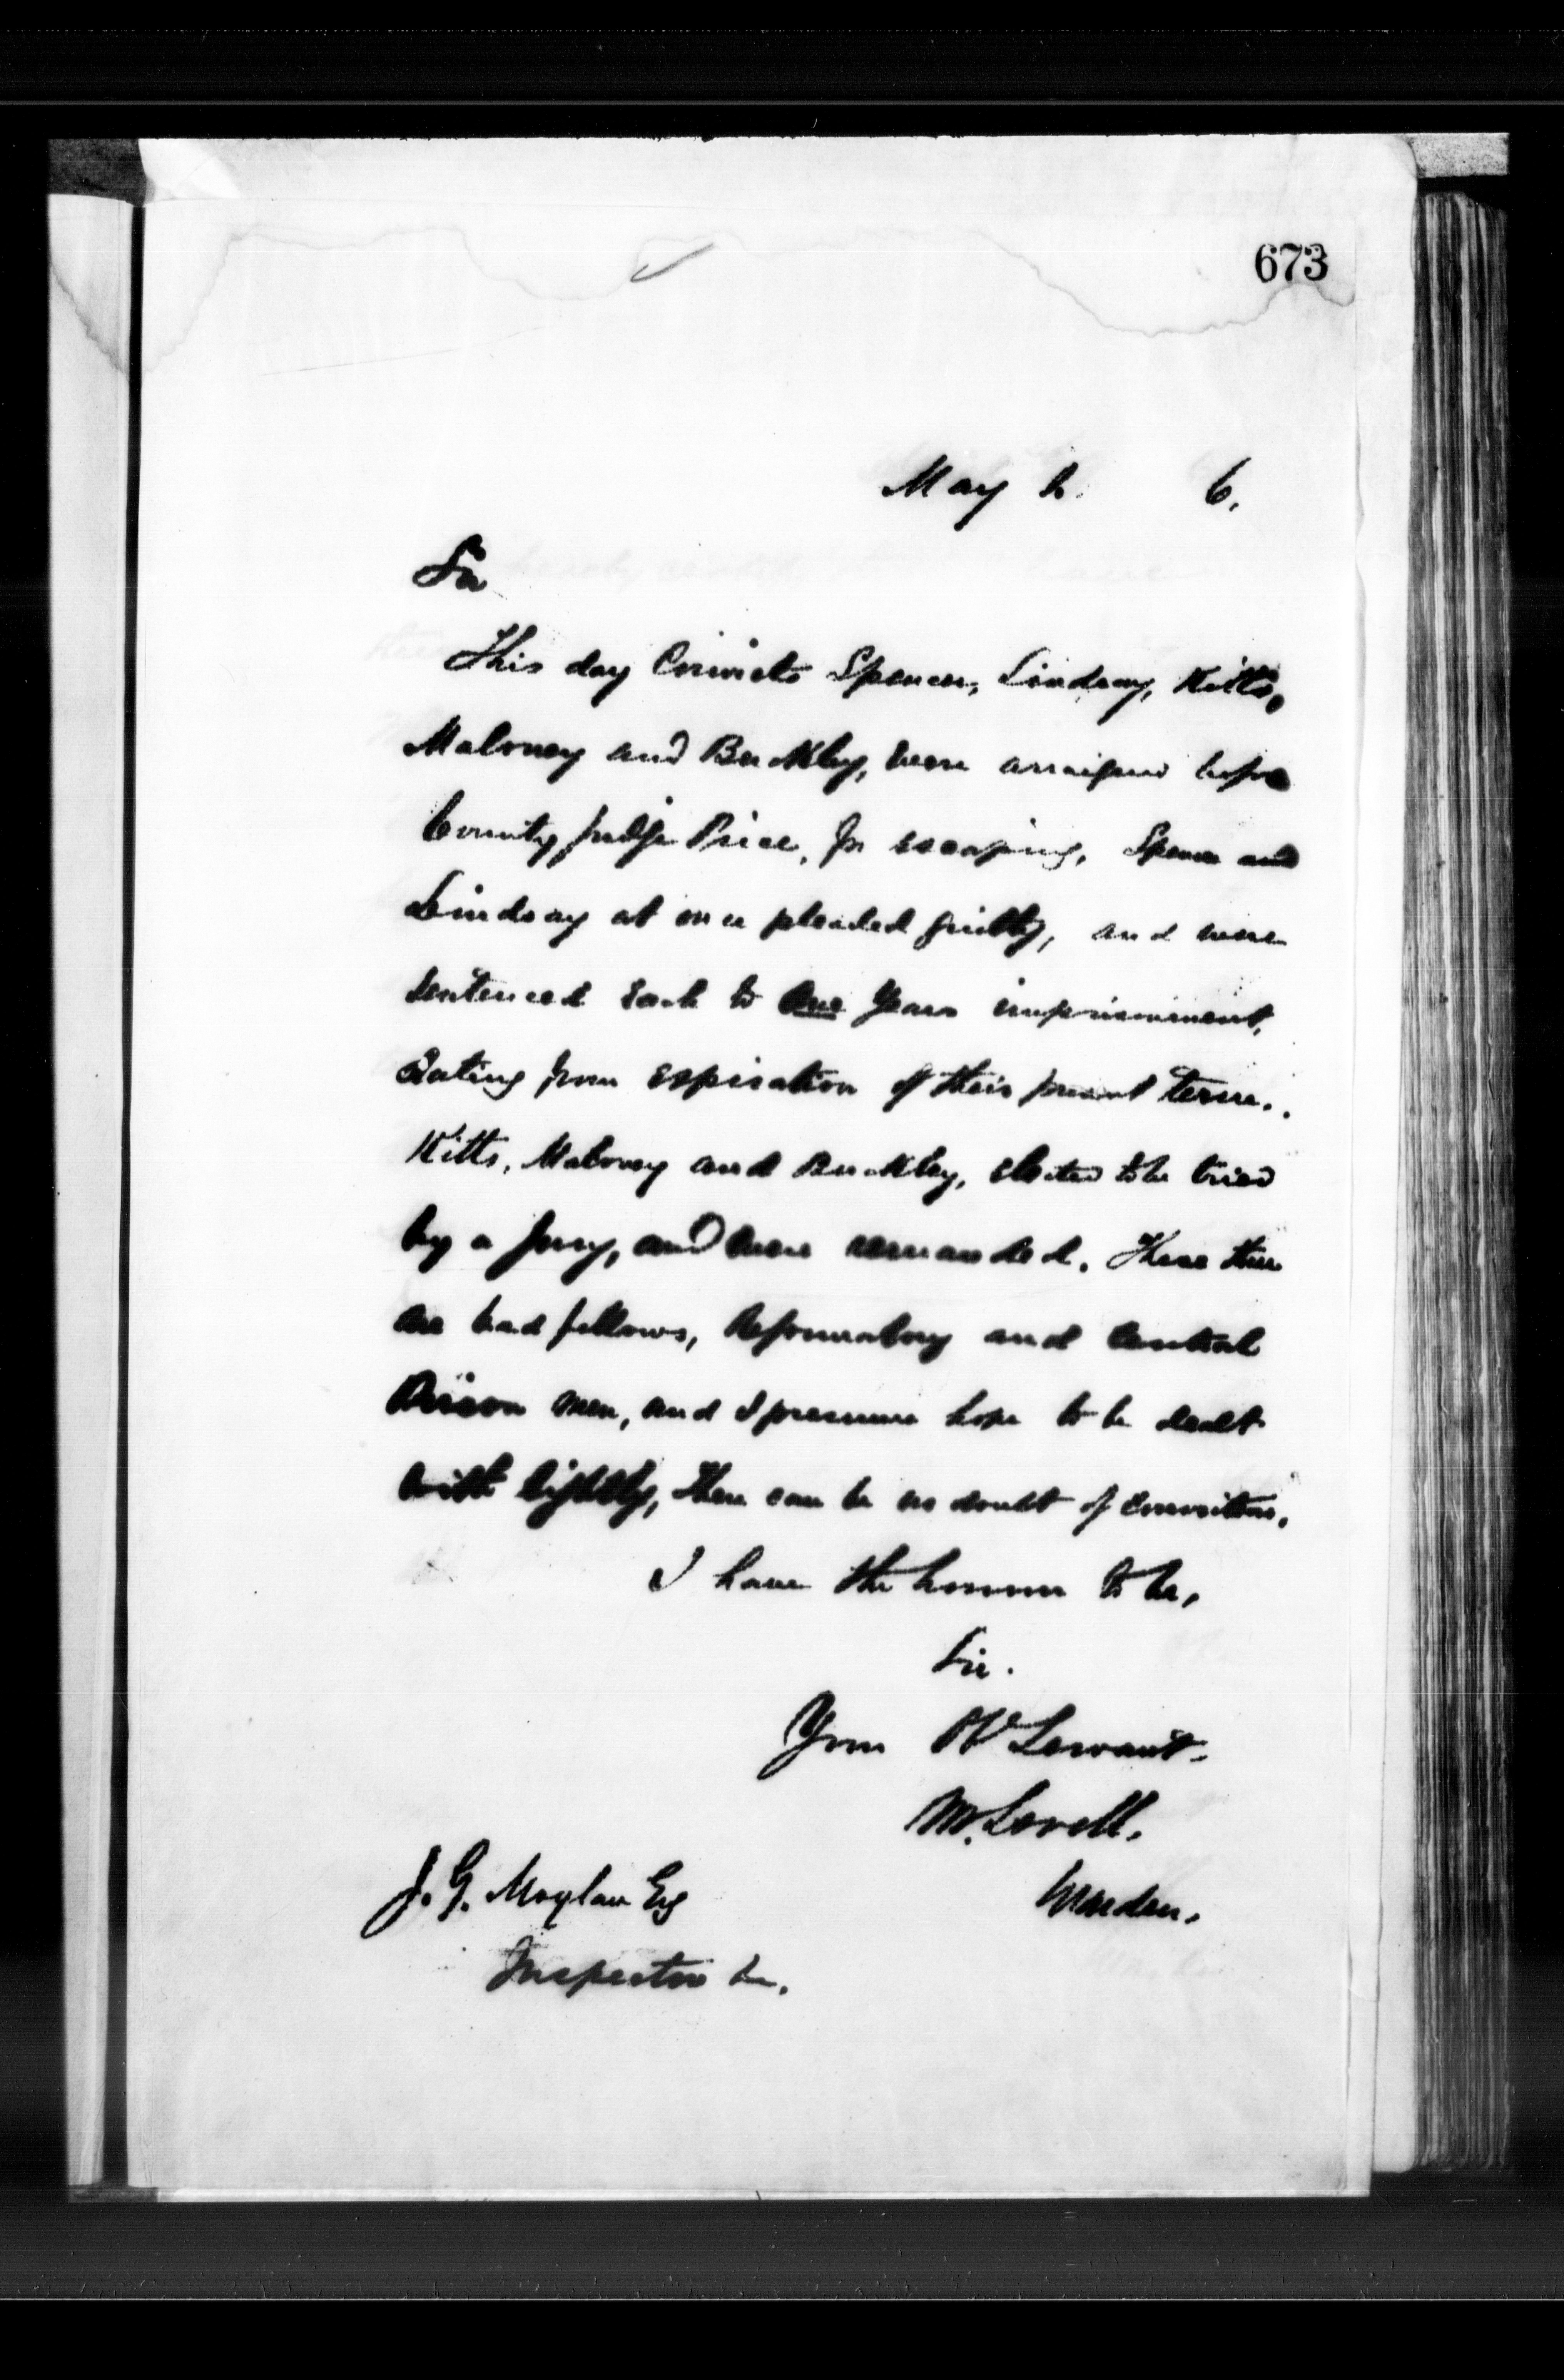 673
May 2. 6.
Sir
This day Convicts Spencer, Lindsay, Kitts,
Maloney and Buckley, were arraigned before
County Judge Price, for escaping, Spencer and
Lindsay at once pleaded guilty, and were
sentenced each to One Years imprisonment,
dating from expiration of their present term.
Kitts, Maloney and Buckley, elected to be tried
by a Jury, and were remanded. These three
are bad fellows, Reformatory and Central
Prison men, and I presume hope to be dealt
with lightly, there can be no doubt of conviction.
I have the honour to be,
Sir.
Your Ob Servant.
M. Lavell.
Warden.
J. G. Moylan Esq
Inspector &c.